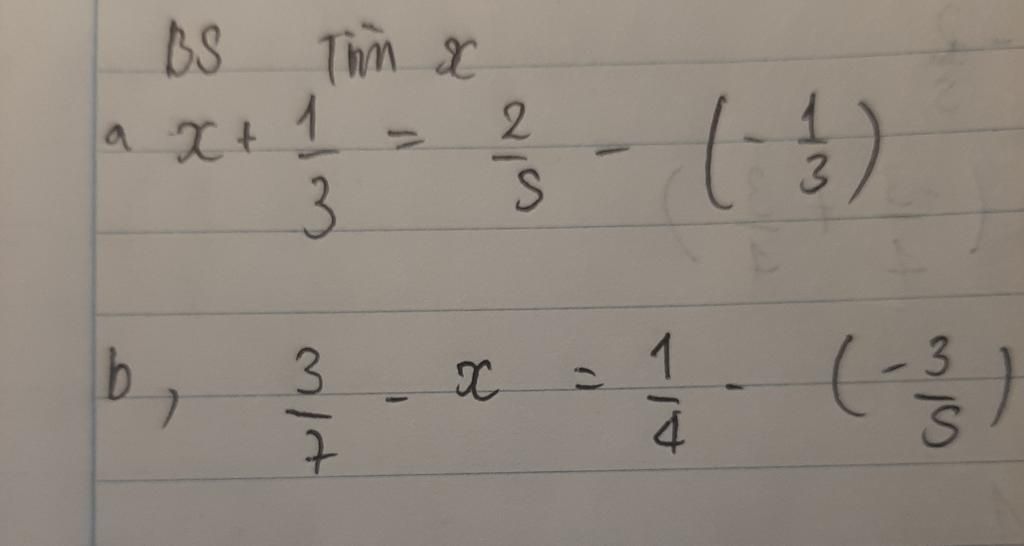 B5 Tìm x
a x + 1/3 = 2/5 - (-1/3)
b, 3/7 - x = 1/4 - (-3/5)